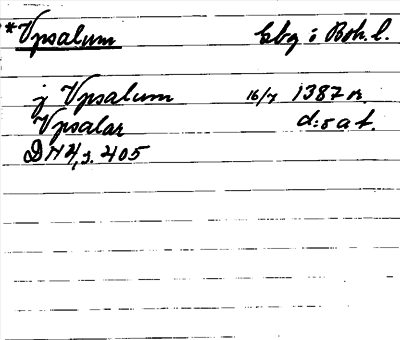 *Vpsalum Ebg i Boh. l.
j Vpsalum 16/7 1387 n.
Vpsalar d:o a f.
DN 4, s. 405